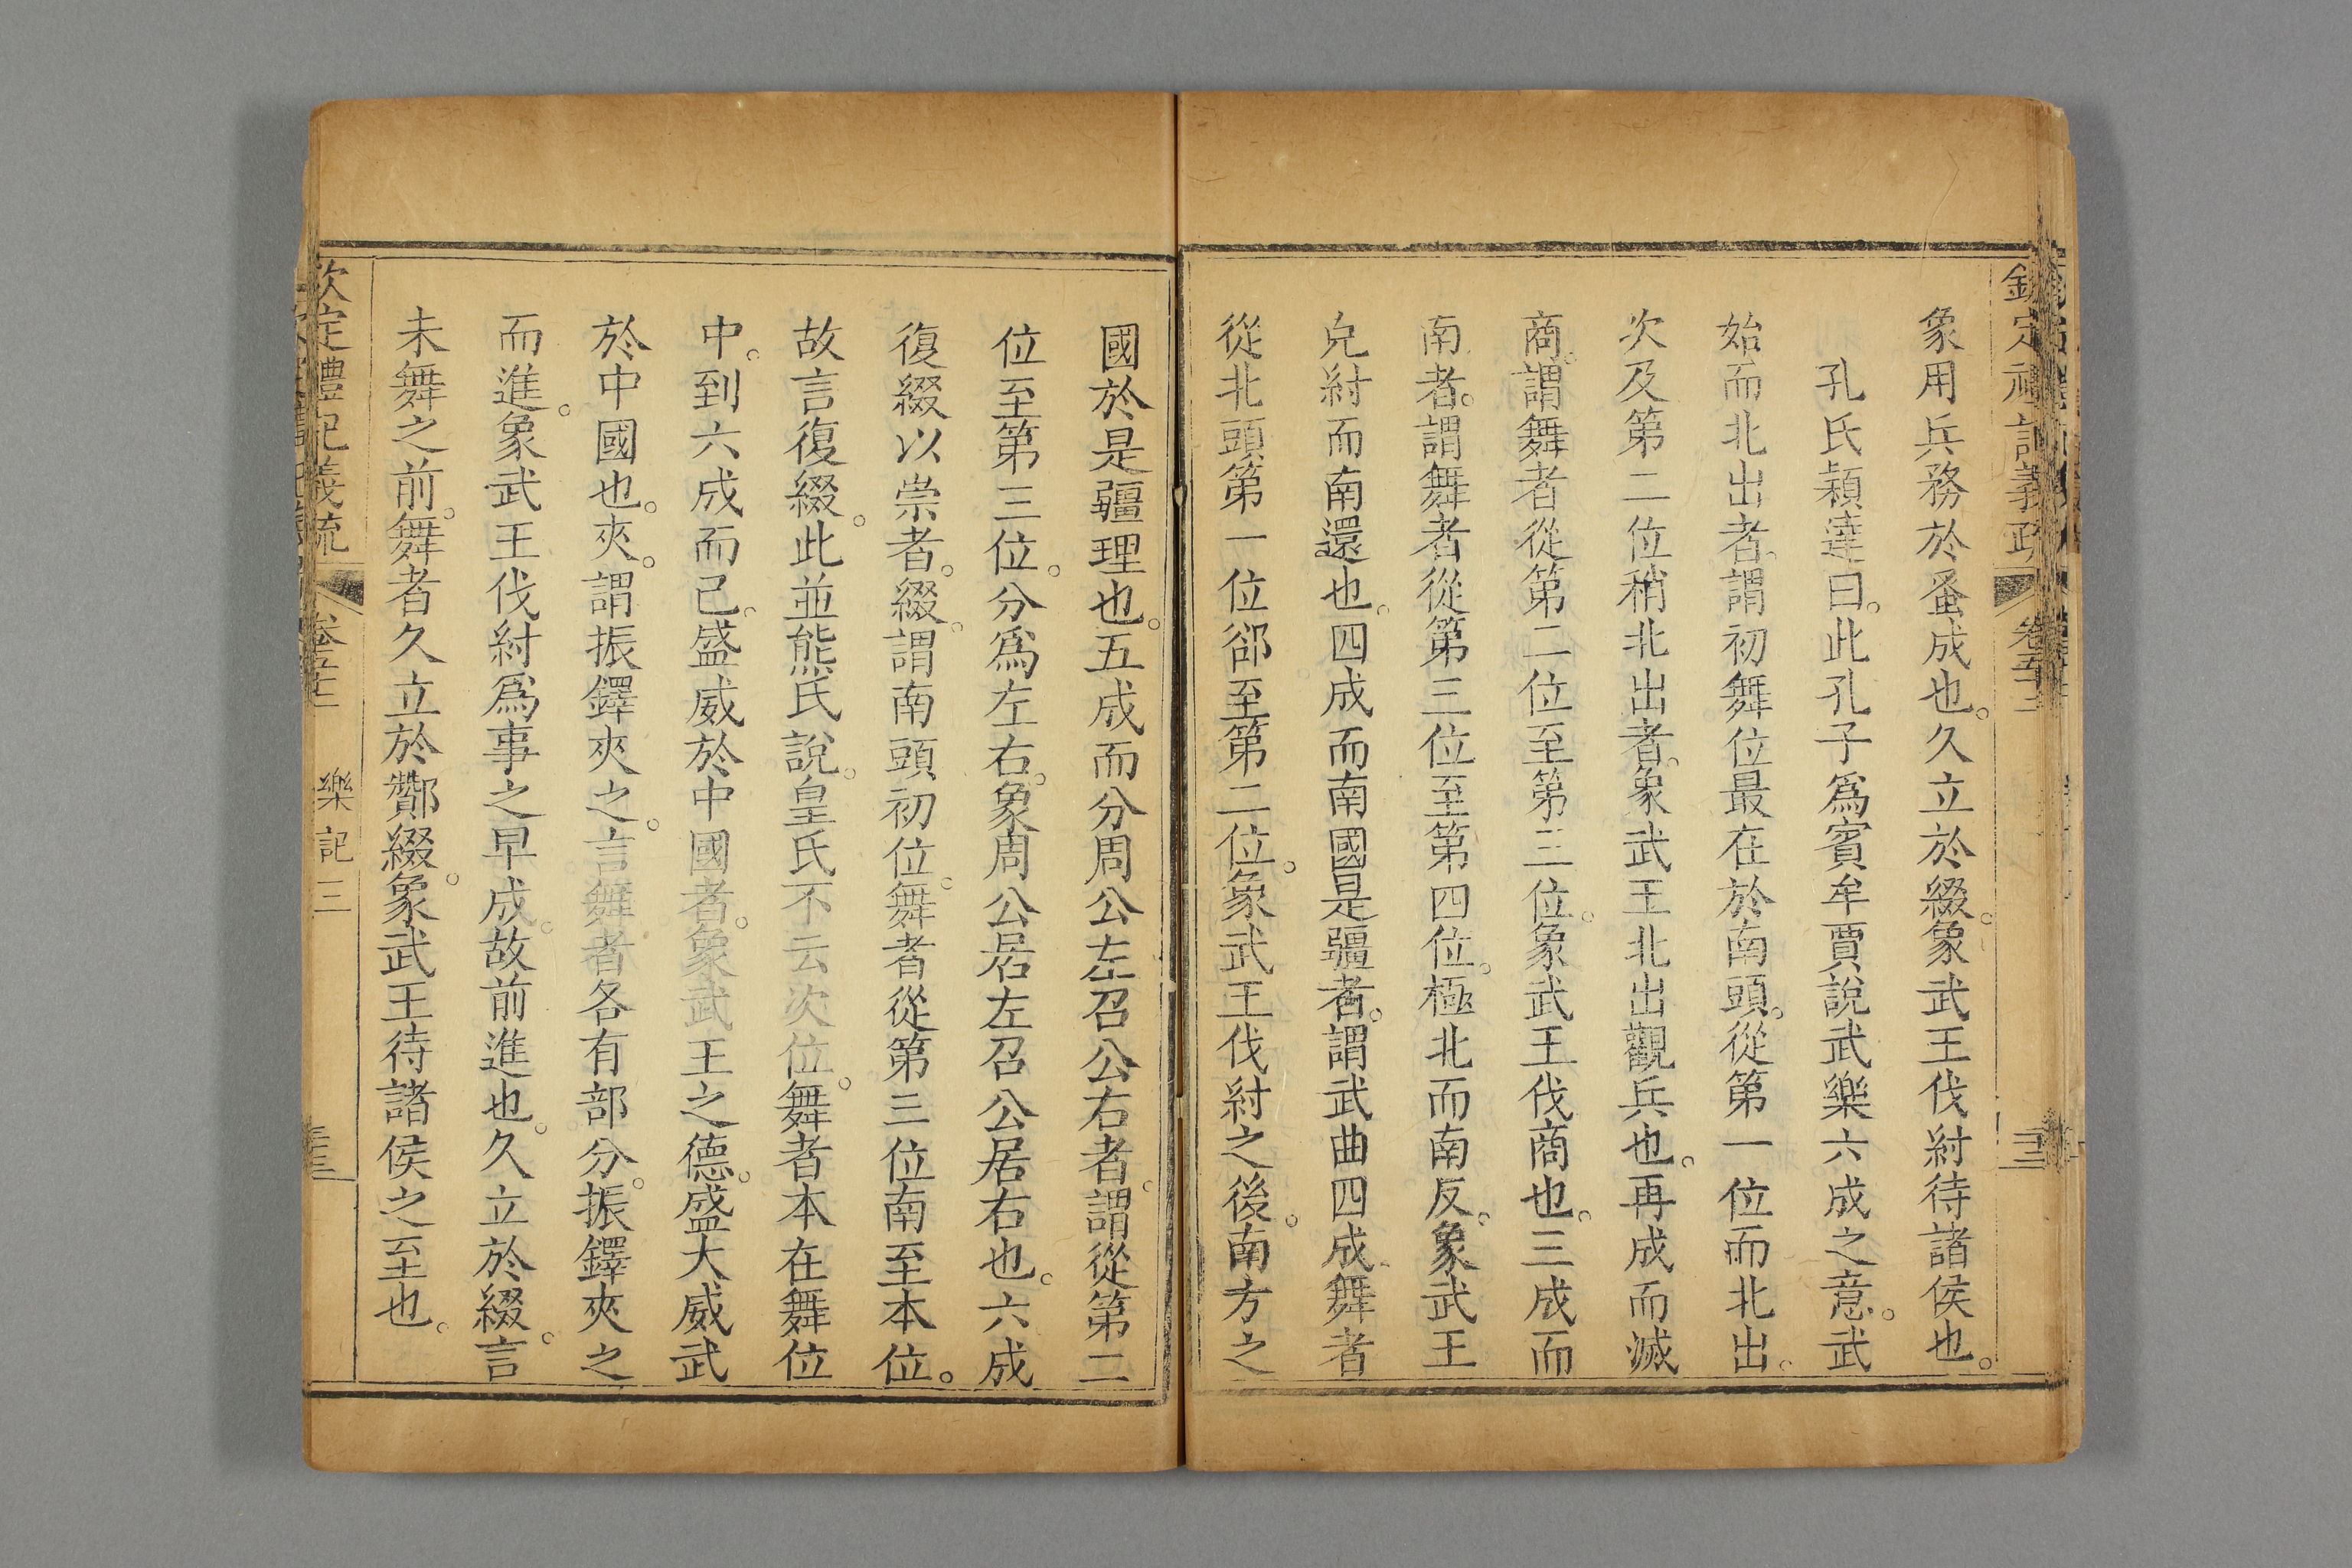 象用兵務於蚤成也。久立於綴。象武王伐紂待諸侯也。
孔氏穎達曰。此孔子爲賓牟賈說武樂六成之意。武
始而北出者。謂初舞位最在於南頭。從第一位而北出。
次及第二位稍北出者。象武王北出觀兵也。再成而滅
商。謂舞者從第二位至第三位。象武王伐商也。三成而
南者。謂舞者從第三位至第四位。極北而南反。象武王
克紂而南還也。四成而南國是疆者。謂武曲四成。舞者
從北頭第一位郤至第二位。象武王伐紂之後。南方之
國於是疆理也。五成而分周公左召公右者。謂從第二
位至第三位。分爲左右。象周公居左召公居右也。六成
復綴以崇者。綴。謂南頭初位。舞者從第三位南至本位。
故言復綴。此並熊氏說。皇氏不云次位。舞者本在舞位
中。到六成而已。盛威於中國者。象武王之德。盛大威武
於中國也。夾。謂振鐸夾之。言舞者各有部分。振鐸夾之
而進。象武王伐紂爲事之早成。故前進也。久立於綴。言
未舞之前。舞者久立於酇綴。象武王待諸侯之至也。
欽定禮記義疏
樂記三